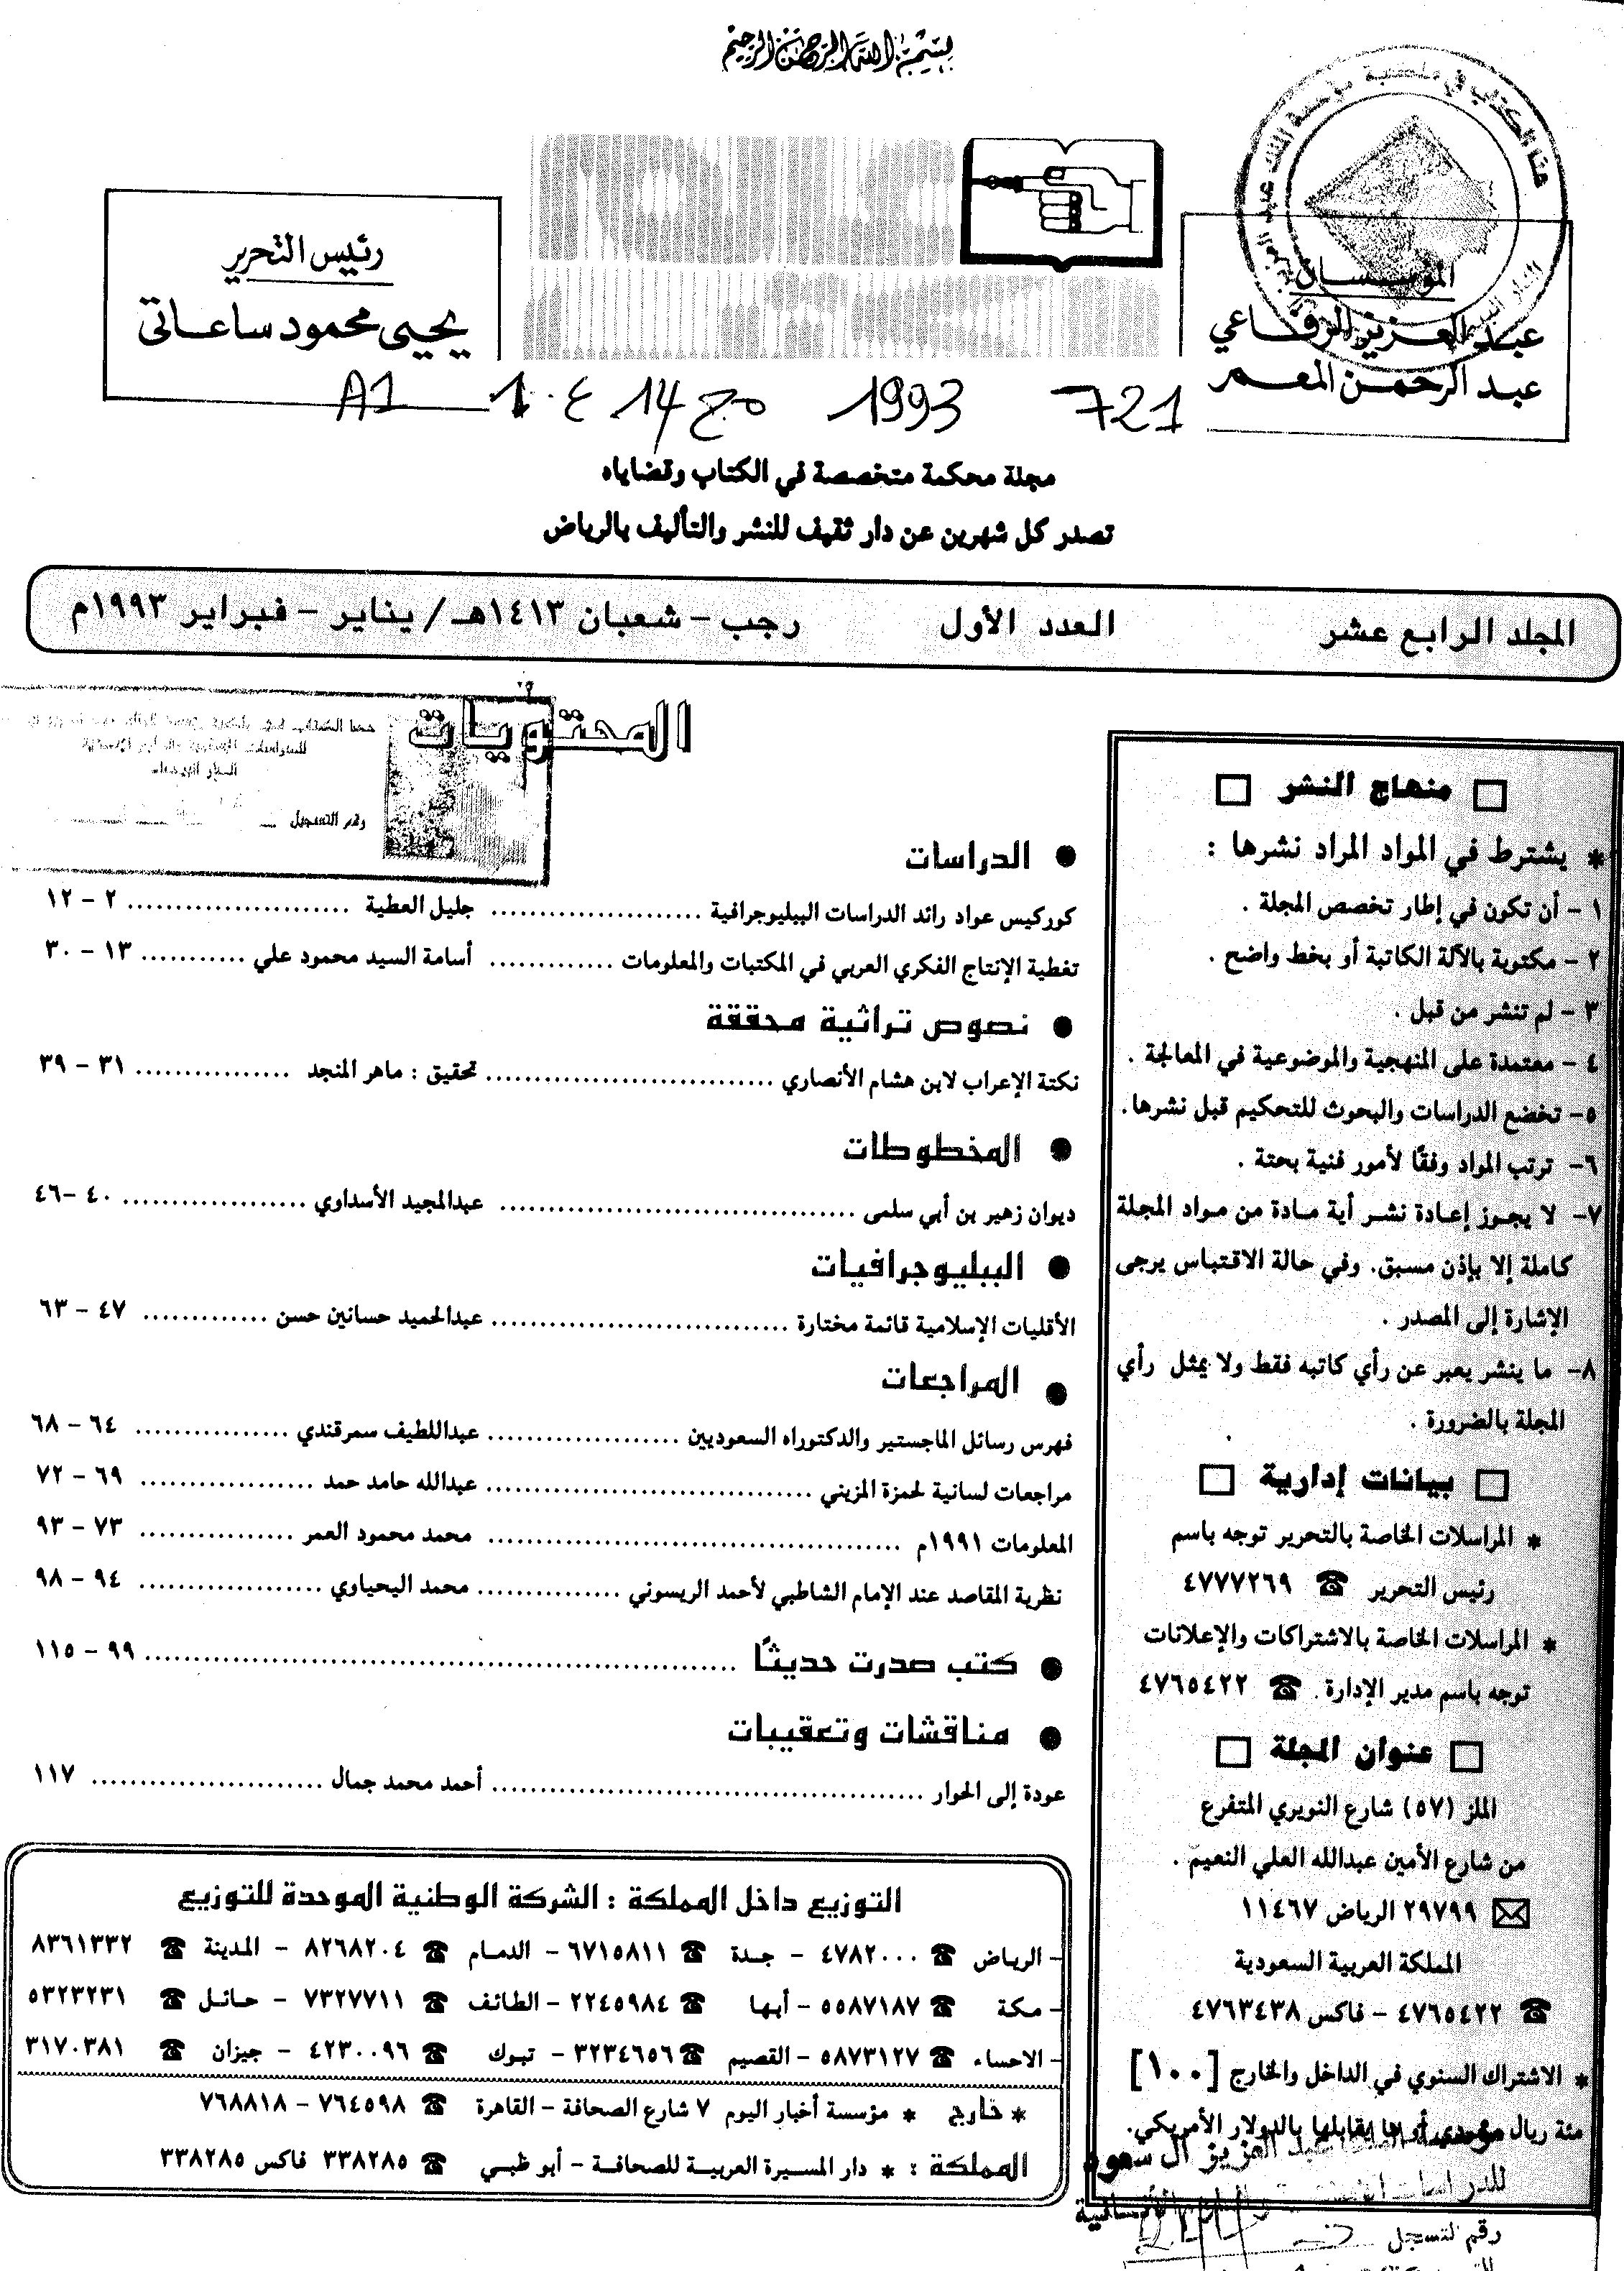 بسم الله الرحمن الرحيم
المؤسسان
عبد العزيز الرفاعي
عبد الرحمن المعمر
رئيس التحرير
يحيى محمود ساعاتي
721 1993 مج 14 ع 1 A1
مجلة محكمة متخصصة في الكتاب وقضاياه
تصدر كل شهرين عن دار ثقيف للنشر والتأليف بالرياض
المجلد الرابع عشر العدد الأول رجب - شعبان ١٤١٣هـ / يناير - فبراير ١٩٩٣م
منهاج النشر
* يشترط في المواد المراد نشرها :
١ - أن تكون في إطار تخصص المجلة .
٢ - مكتوبة بالآلة الكاتبة أو بخط واضح .
٣ - لم تنشر من قبل .
٤ - معتمدة على المنهجية والموضوعية في المعالجة .
٥- تخضع الدراسات والبحوث للتحكيم قبل نشرها.
٦- ترتب المواد وفقًا لأمور فنية بحتة .
٧- لا يجوز إعادة نشر أية مادة من مواد المجلة
كاملة إلا بإذن مسبق. وفي حالة الاقتباس يرجى
الإشارة إلى المصدر .
٨- ما ينشر يعبر عن رأي كاتبه فقط ولا يمثل رأي
المجلة بالضرورة .
بيانات إدارية
* المراسلات الخاصة بالتحرير توجه باسم
رئيس التحرير ☎ ٤٧٧٧٢٦٩
* المراسلات الخاصة بالاشتراكات والإعلانات
توجه باسم مدير الإدارة . ☎ ٤٧٦٥٤٢٢
عنوان المجلة
الملز (٥٧) شارع النويري المتفرع
من شارع الأمين عبدالله العلي النعيم .
✉ ٢٩٧٩٩ الرياض ١١٤٦٧
المملكة العربية السعودية
☎ ٤٧٦٥٤٢٢ - فاكس ٤٧٦٣٤٣٨
* الاشتراك السنوي في الداخل والخارج [١٠٠]
مئة ريال سعودي أو ما يقابلها بالدولار الأمريكي.
المحتويات
● الدراسات
كوركيس عواد رائد الدراسات الببليوجرافية ...................... جليل العطية ....................... ٢ - ١٢
تغطية الإنتاج الفكري العربي في المكتبات والمعلومات ............. أسامة السيد محمود علي ........... ١٣ - ٣٠
● نصوص تراثية محققة
نكتة الإعراب لابن هشام الأنصاري .............................. تحقيق : ماهر المنجد ................ ٣١ - ٣٩
● المخطوطات
ديوان زهير بن أبي سلمى ..................................... عبدالمجيد الأسداوي ................... ٤٠ -٤٦
● الببليوجرافيات
الأقليات الإسلامية قائمة مختارة ............................... عبدالحميد حسانين حسن ............. ٤٧ - ٦٣
● المراجعات
فهرس رسائل الماجستير والدكتوراه السعوديين .................... عبداللطيف سمرقندي ................ ٦٤ - ٦٨
مراجعات لسانية لحمزة المزيني .................................. عبدالله حامد حمد .................. ٦٩ - ٧٢
المعلومات ١٩٩١م ........................................... محمد محمود العمر ................ ٧٣ - ٩٣
نظرية المقاصد عند الإمام الشاطبي لأحمد الريسوني ............... محمد اليحياوي ................... ٩٤ - ٩٨
● كتب صدرت حديثًا ............................................................. ٩٩ - ١١٥
● مناقشات وتعقيبات
عودة إلى الحوار ............................................. أحمد محمد جمال ........................ ١١٧
التوزيع داخل المملكة : الشركة الوطنية الموحدة للتوزيع
- الرياض ☎ ٤٧٨٢٠٠٠ - جدة ☎ ٦٧١٥٨١١ - الدمام ☎ ٨٢٦٨٢٠٤ - المدينة ☎ ٨٣٦١٣٣٢
- مكة ☎ ٥٥٨٧١٨٧ - أبها ☎ ٢٢٤٥٩٨٤ - الطائف ☎ ٧٣٢٧٧١١ - حائل ☎ ٥٣٢٣٢٣١
- الاحساء ☎ ٥٨٧٣١٢٧ - القصيم ☎ ٣٢٣٤٦٥٦ - تبوك ☎ ٤٢٣٠٠٩٦ - جيزان ☎ ٣١٧٠٣٨١
* خارج * مؤسسة أخبار اليوم ٧ شارع الصحافة - القاهرة ☎ ٧٦٤٥٩٨ - ٧٦٨٨١٨
المملكة : * دار المسيرة العربية للصحافة - أبو ظبي ☎ ٣٣٨٢٨٥ فاكس ٣٣٨٢٨٥
رقم التسجيل
عبد العزيز آل سعود
رقم لتسجل